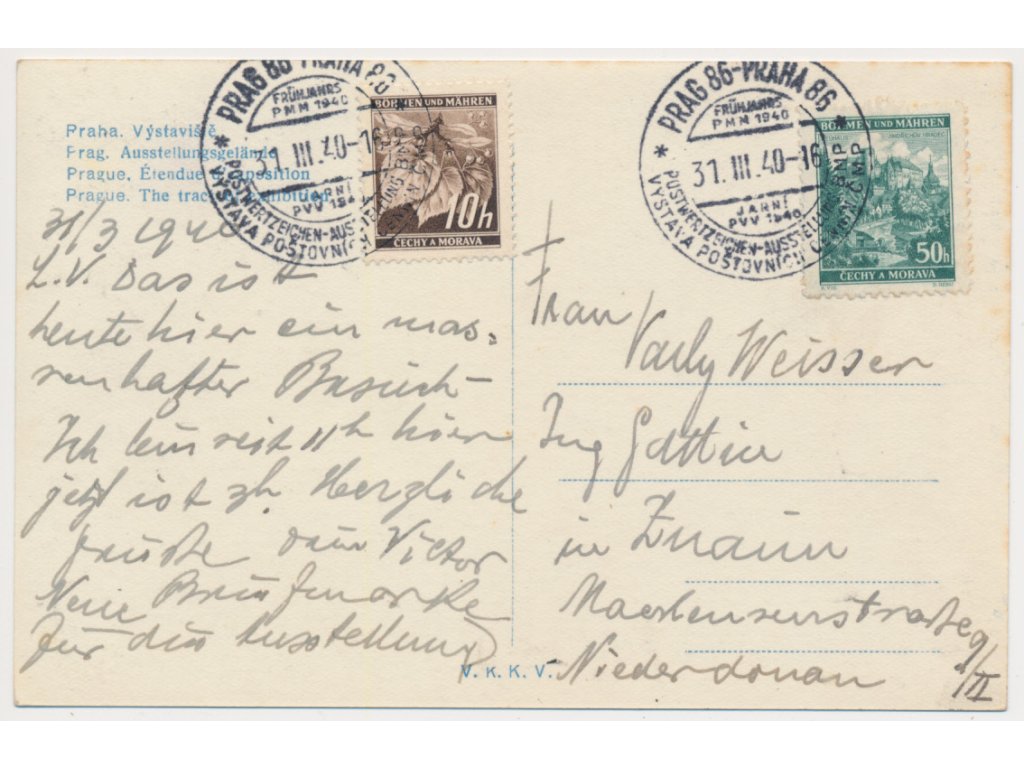 Praha. Výstaviště
Prag. Ausstellungsgelände
Prague. Étendue d'exposition
Prague. The tract of exhibition
PRAG 86-PRAHA 86
FRÜHJAHRS
PMM 1940
31.III.40-16
JARNÍ
PVV 1940
POSTWERTZEICHEN-AUSSTELLUNG
VÝSTAVA POŠTOVNÍCH
BÖHMEN UND MÄHREN
10h
ČECHY A MORAVA
PRAG 86-PRAHA 86
FRÜHJAHRS
PMM 1940
31.III.40-16
JARNÍ
PVV 1940
POSTWERTZEICHEN-AUSSTELLUNG BMP
VÝSTAVA POŠTOVNÍCH CENIN ČMP
BÖHMEN UND MÄHREN
JINDŘICHŮV HRADEC
50h
ČECHY A MORAVA
31/3 1940
L.V. Das ist
heute hier ein mas-
senhafter Besuch
Ich bin seit 11h hier
jetzt ist 2h. Herzliche
Grüße dein Victor
Neue Briefmarke
für die Ausstellung
Frau
Weisser
Ing Gattin
in Znaim
Mackensenstrasse 9/II
Niederdonau
V. K. K. V.